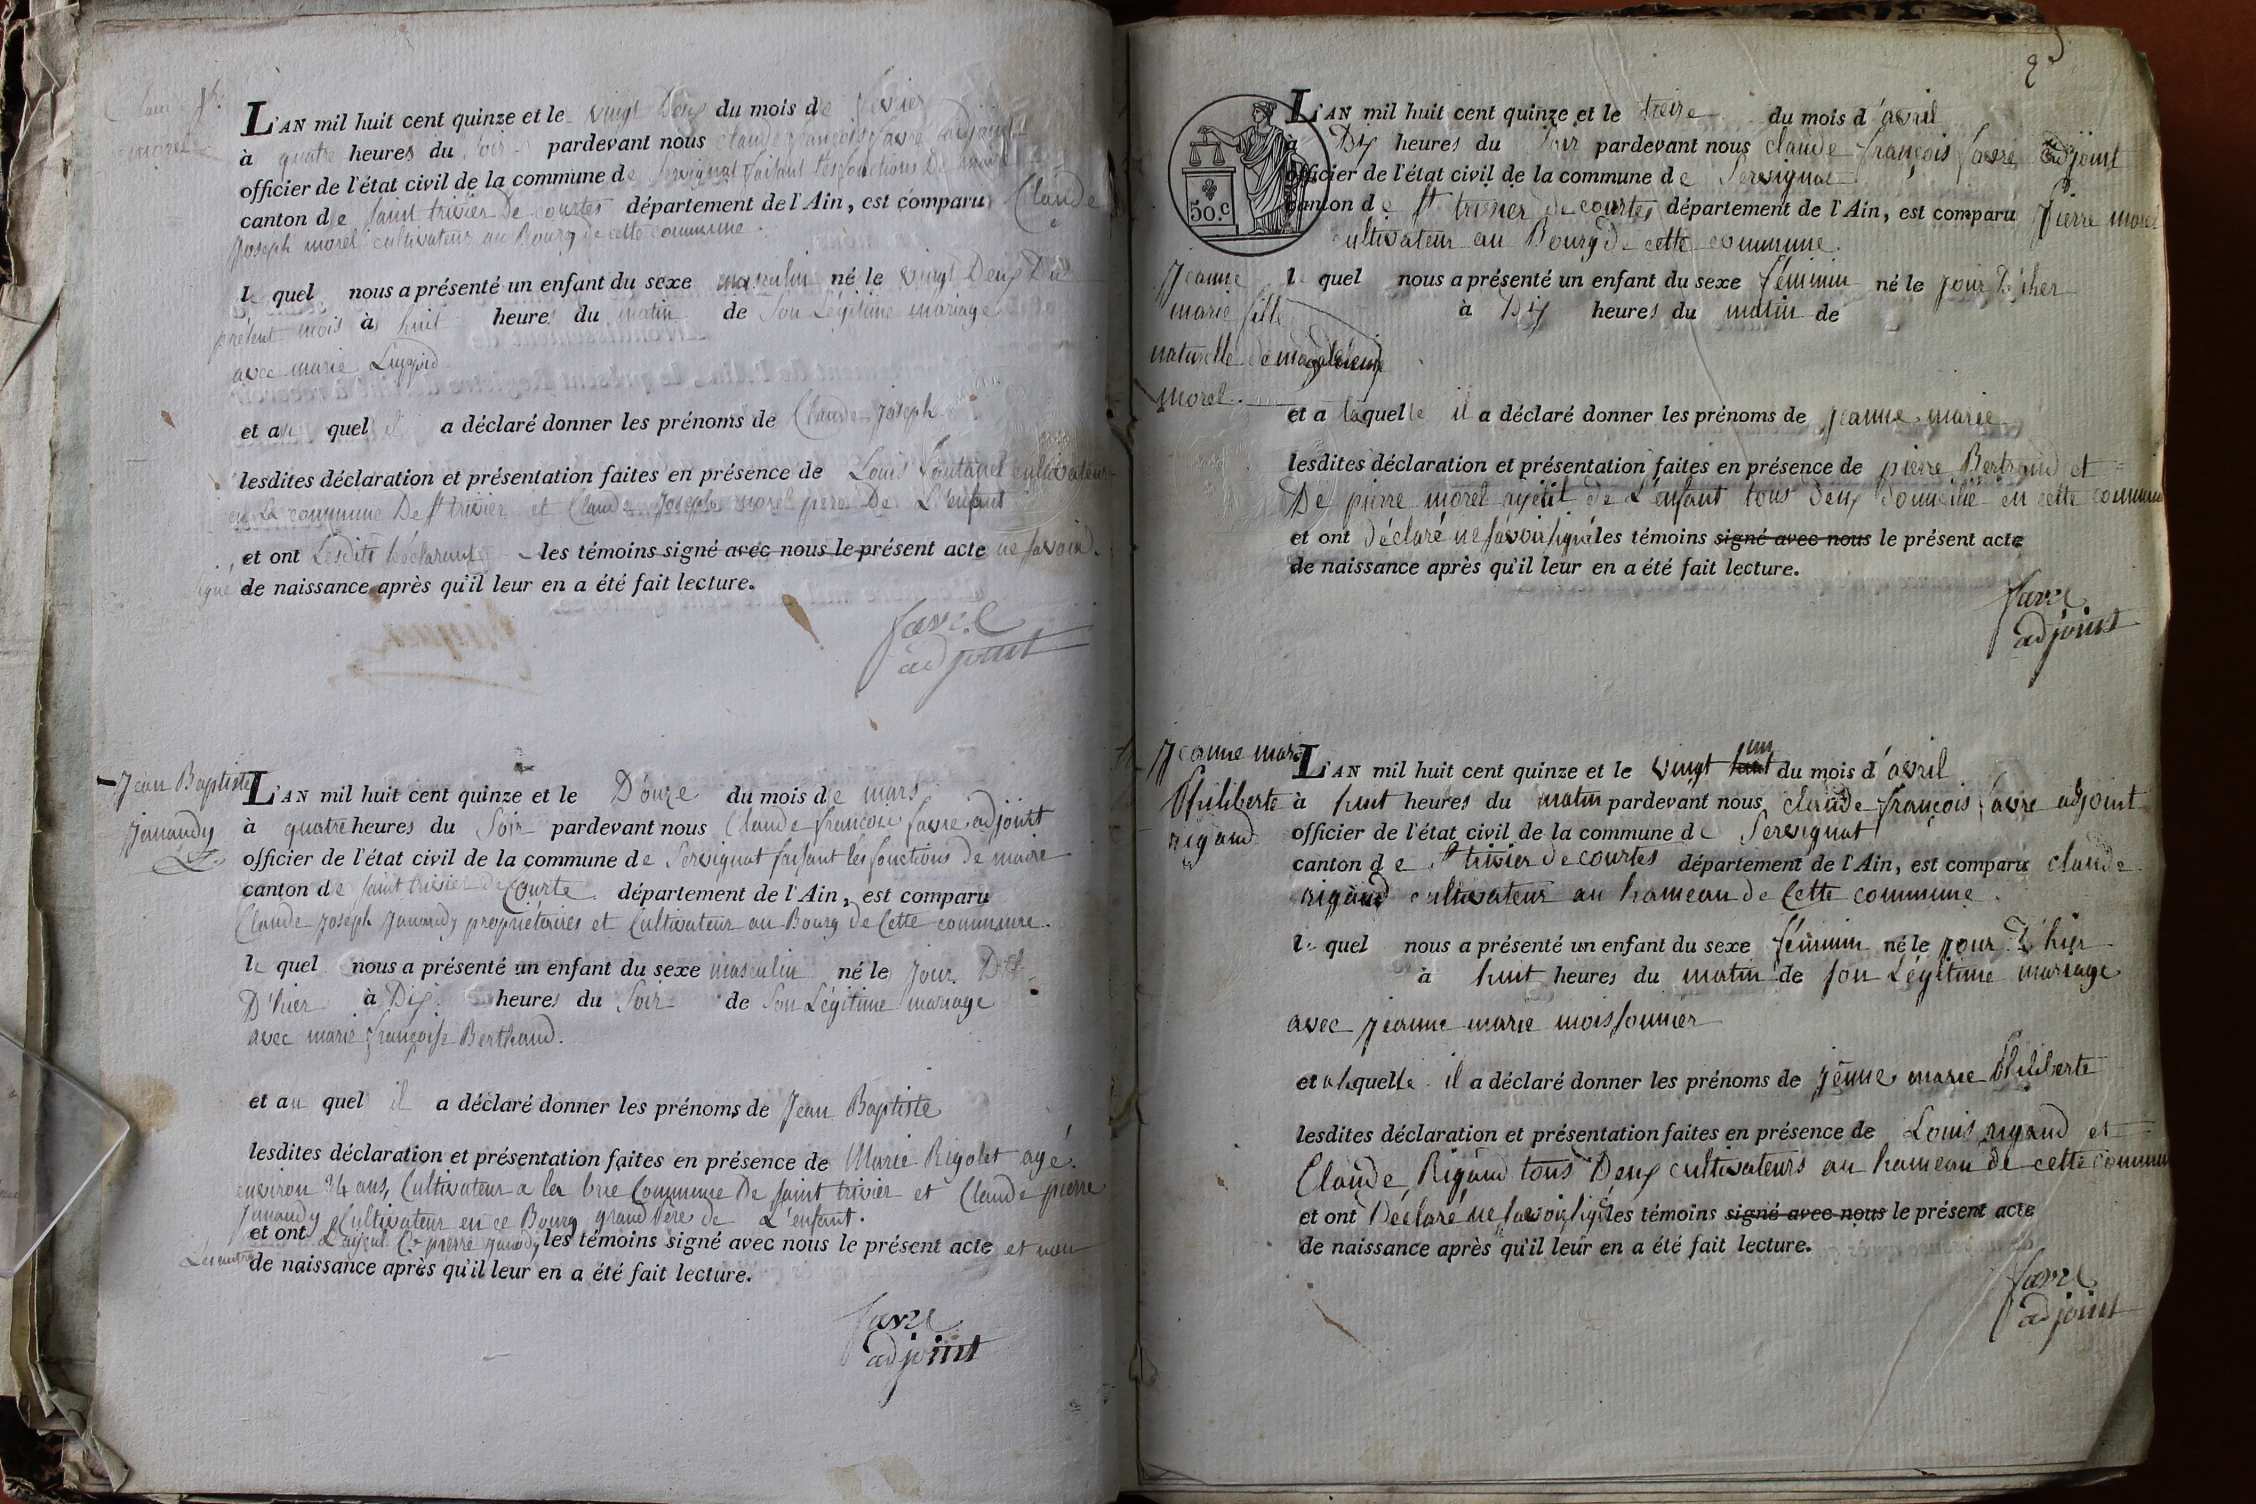 Claude Jh.
morel
L'AN mil huit cent quinze et le vingt Deux du mois de fevier
à quatre heures du soir pardevant nous claude françois favre adjoint
officier de l'état civil de la commune de Servignat faisant les fonctions De maire
canton de saint trivier De courtes département de l'Ain, est comparu Claude
Joseph morel cultivateur au Bourg de cette commune.
le quel nous a présenté un enfant du sexe masculin né le vingt Deux Du
présent mois à huit heures du matin de Son Légitime mariage
avec marie
et au quel il a déclaré donner les prénoms de Claude Joseph
lesdites déclaration et présentation faites en présence de Louis cultivateur
en La commune De st trivier et Claude Joseph morel pere De L'enfant
et ont Lesdits Déclarant les témoins signé avec nous le présent acte ne savoir
signé de naissance après qu'il leur en a été fait lecture.
favre
adjoint
Jean Baptiste
Janaudy
L'AN mil huit cent quinze et le D'ouze du mois de mars
à quatre heures du Soir pardevant nous Claude françois favre adjoint
officier de l'état civil de la commune de Servignat fesant les fonctions De maire
canton de saint trivier de Courte département de l'Ain, est comparu
Claude Joseph Janaudy propriétaires et Cultivateur au Bourg de Cette commune.
le quel nous a présenté un enfant du sexe masculin né le jour
D'hier à Dix heures du Soir de Son Légitime mariage
avec marie françoise Berthaud.
et au quel il a déclaré donner les prénoms de Jean Baptiste
lesdites déclaration et présentation faites en présence de Marie Rigolet agé
environ 34 ans, Cultivateur a la Commune De saint trivier et Claude pierre
Janaudy Cultivateur en ce Bourg grand père de L'enfant.
et ont L'ayeul Cde pierre Janaudy les témoins signé avec nous le présent acte et non
Les autres de naissance après qu'il leur en a été fait lecture.
favre
adjoint
2
50.C
L'AN mil huit cent quinze et le treize du mois d'avril
à Dix heures du Soir pardevant nous claude françois favre adjoint
officier de l'état civil de la commune de Servignat
canton de st trivier de courtes département de l'Ain, est comparu Pierre morel
cultivateur au Bourg de cette commune.
Jeanne
marie fille
naturelle de magdeleine
morel.
le quel nous a présenté un enfant du sexe féminin né le jour D'hier
à Dix heures du matin de
et a laquelle il a déclaré donner les prénoms de jeanne marie
lesdites déclaration et présentation faites en présence de pierre Bertrand et
De pierre morel ayeul de L'enfant tous Deux domicilié en cette commune
et ont déclaré ne savoir signé les témoins signé avec nous le présent acte
de naissance après qu'il leur en a été fait lecture.
favre
adjoint
Jeanne marie
Philiberte
rigaud
L'AN mil huit cent quinze et le vingt un du mois d'avril
à huit heures du matin pardevant nous claude françois favre adjoint
officier de l'état civil de la commune de Servignat
canton de st trivier de courtes département de l'Ain, est comparu claude
rigaud cultivateur au hameau de Cette commune.
le quel nous a présenté un enfant du sexe féminin né le jour D'hier
à huit heures du matin de son Légitime mariage
avec Jeanne marie moissonnier
et a laquelle il a déclaré donner les prénoms de jenne marie Philiberte
lesdites déclaration et présentation faites en présence de Louis rigaud et
Claude Rigaud tous Deux cultivateurs au hameau de cette commune
et ont Déclaré ne savoir signé les témoins signé avec nous le présent acte
de naissance après qu'il leur en a été fait lecture.
favre
adjoint